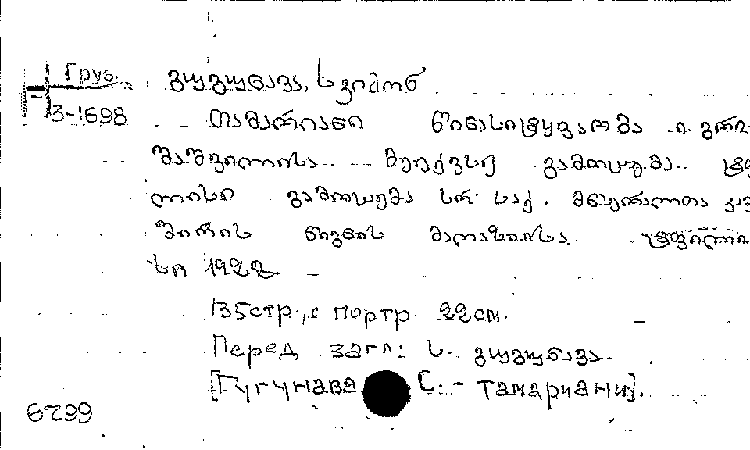 Груз. გუგუნავა, სვიმონ
3-1698
თამარიანი წინასიტყვაობა ი. გრი
შაშვილისა. მეექვსე გამოცემა. ტფი
ლისი გამოცემა სრ. საქ. მწერალთა კავ
შირის წიგნის მაღაზიისა. ტფილი
სი 1922 –
135стр., с портр 22см.
Перед загл: ს. გუგუნავა.
[Гугунава С. - Тамариани].
6299